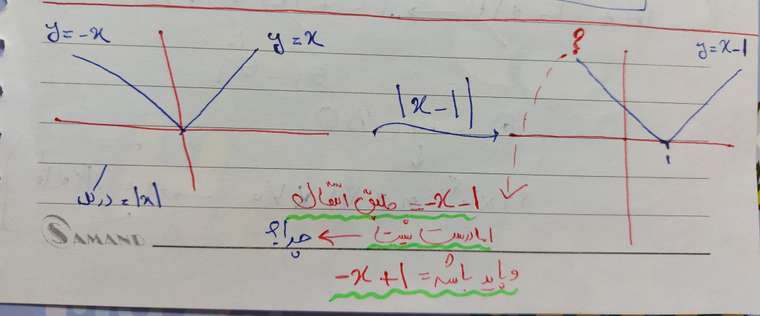 y=-x
y=x
|x-1|
?
y=x-1
1
|x| =
-x-1 = طبق انتقال
اما درست نیست ← چرا؟
و باید باشه = -x+1
SAMAND